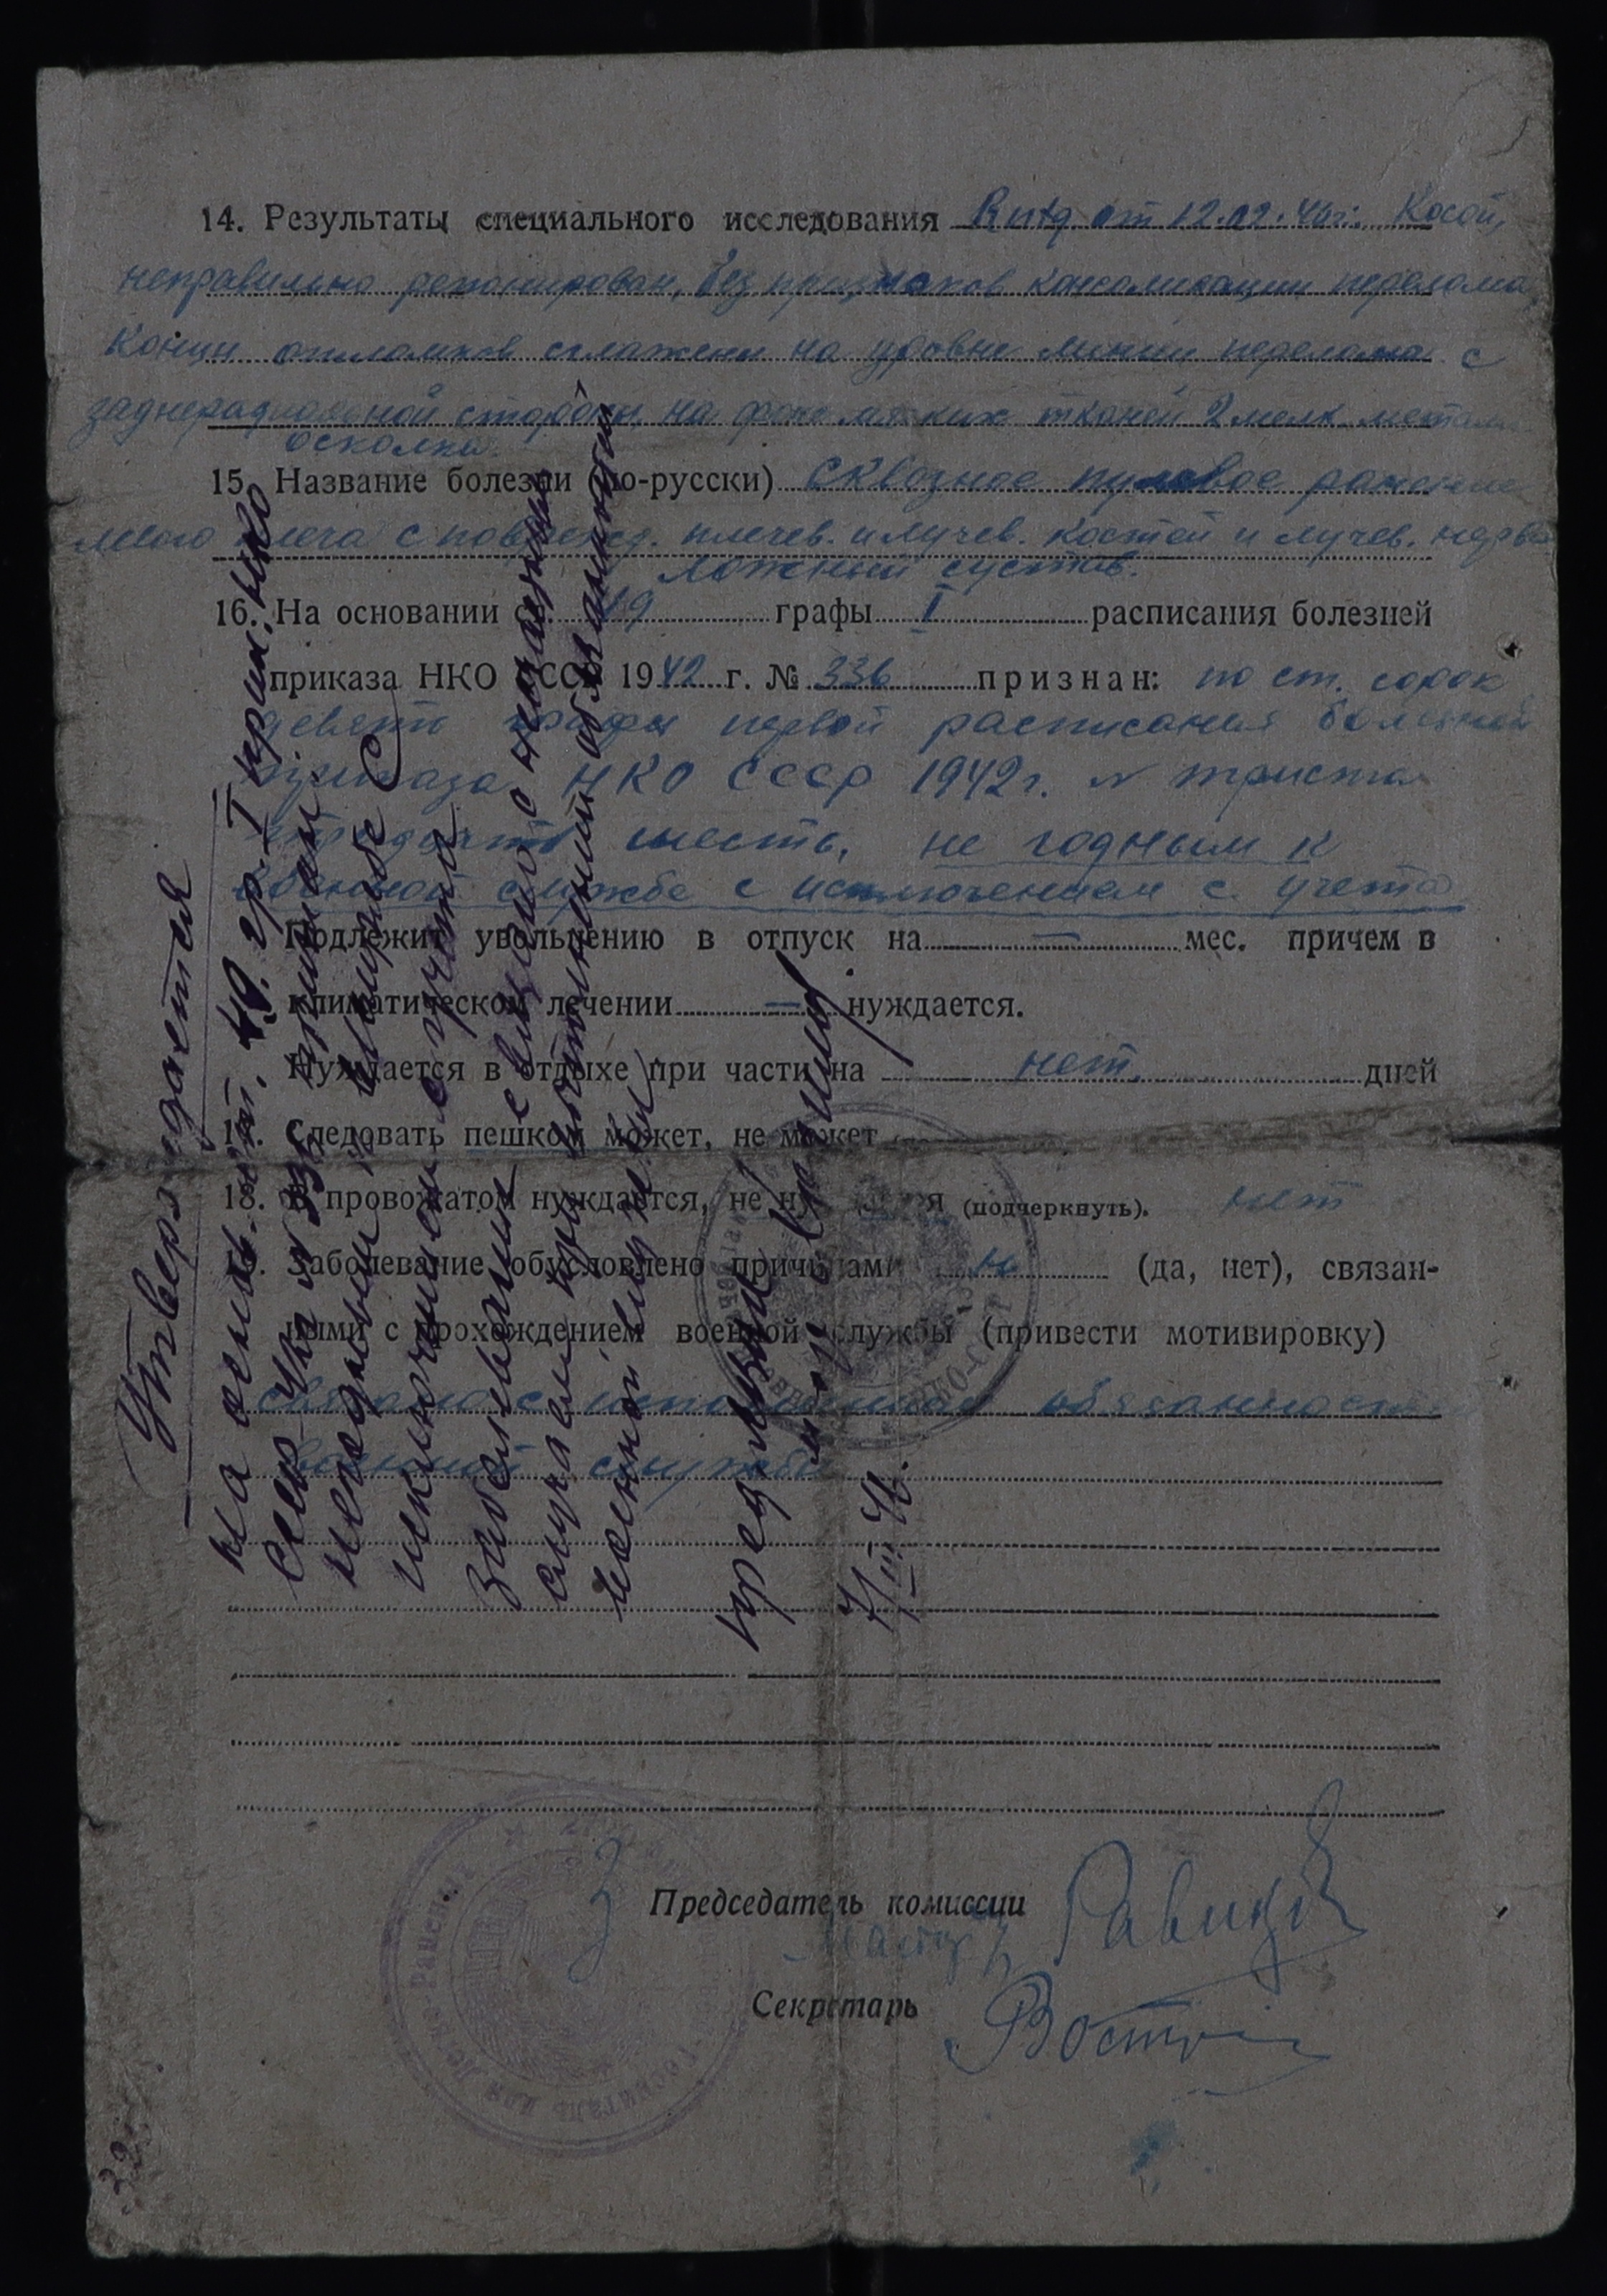 14. Результаты специального исследования Rntg. от 12.02.46г. Косой,
неправильно, без признаков консолидации перелома
концы отломков сглажены на уровне линии перелома с
стороны, на фоне мягких тканей 2 мелк. металл.
осколка.
15. Название болезни (по-русски) Сквозное пулевое ранение
левого плеча с поврежд. плечев. и лучев. костей и лучев. нерва
ложный сустав.
16. На основании ст. 49 графы I расписания болезней
приказа НКО СССР 1942 г. № 336 признан: по ст. сорок
девять графы первой расписания болезней
приказа НКО СССР 1942г. № триста
тридцать шесть, не годным к
военной службе с исключением с учета
Подлежит увольнению в отпуск на — мес. причем в
климатическом лечении — нуждается.
Нуждается в отдыхе при части на нет. дней
17. Следовать пешком может, не может
18. В провожатом нуждается, не нуждается (подчеркнуть). нет
19. Заболевание обусловлено причинами (да, нет), связан-
ными с прохождением военной службы (привести мотивировку)
связано с исполнением обязанностей
военной службы
Председатель комиссии
Секретарь
Утверждается
на основ. 49. гр. I прик. НКО
СССР 336 признан
негодным к службе с
исключением с учета.
Заболевание связано с
случаем при исполнении обязанностей
военной службы
32